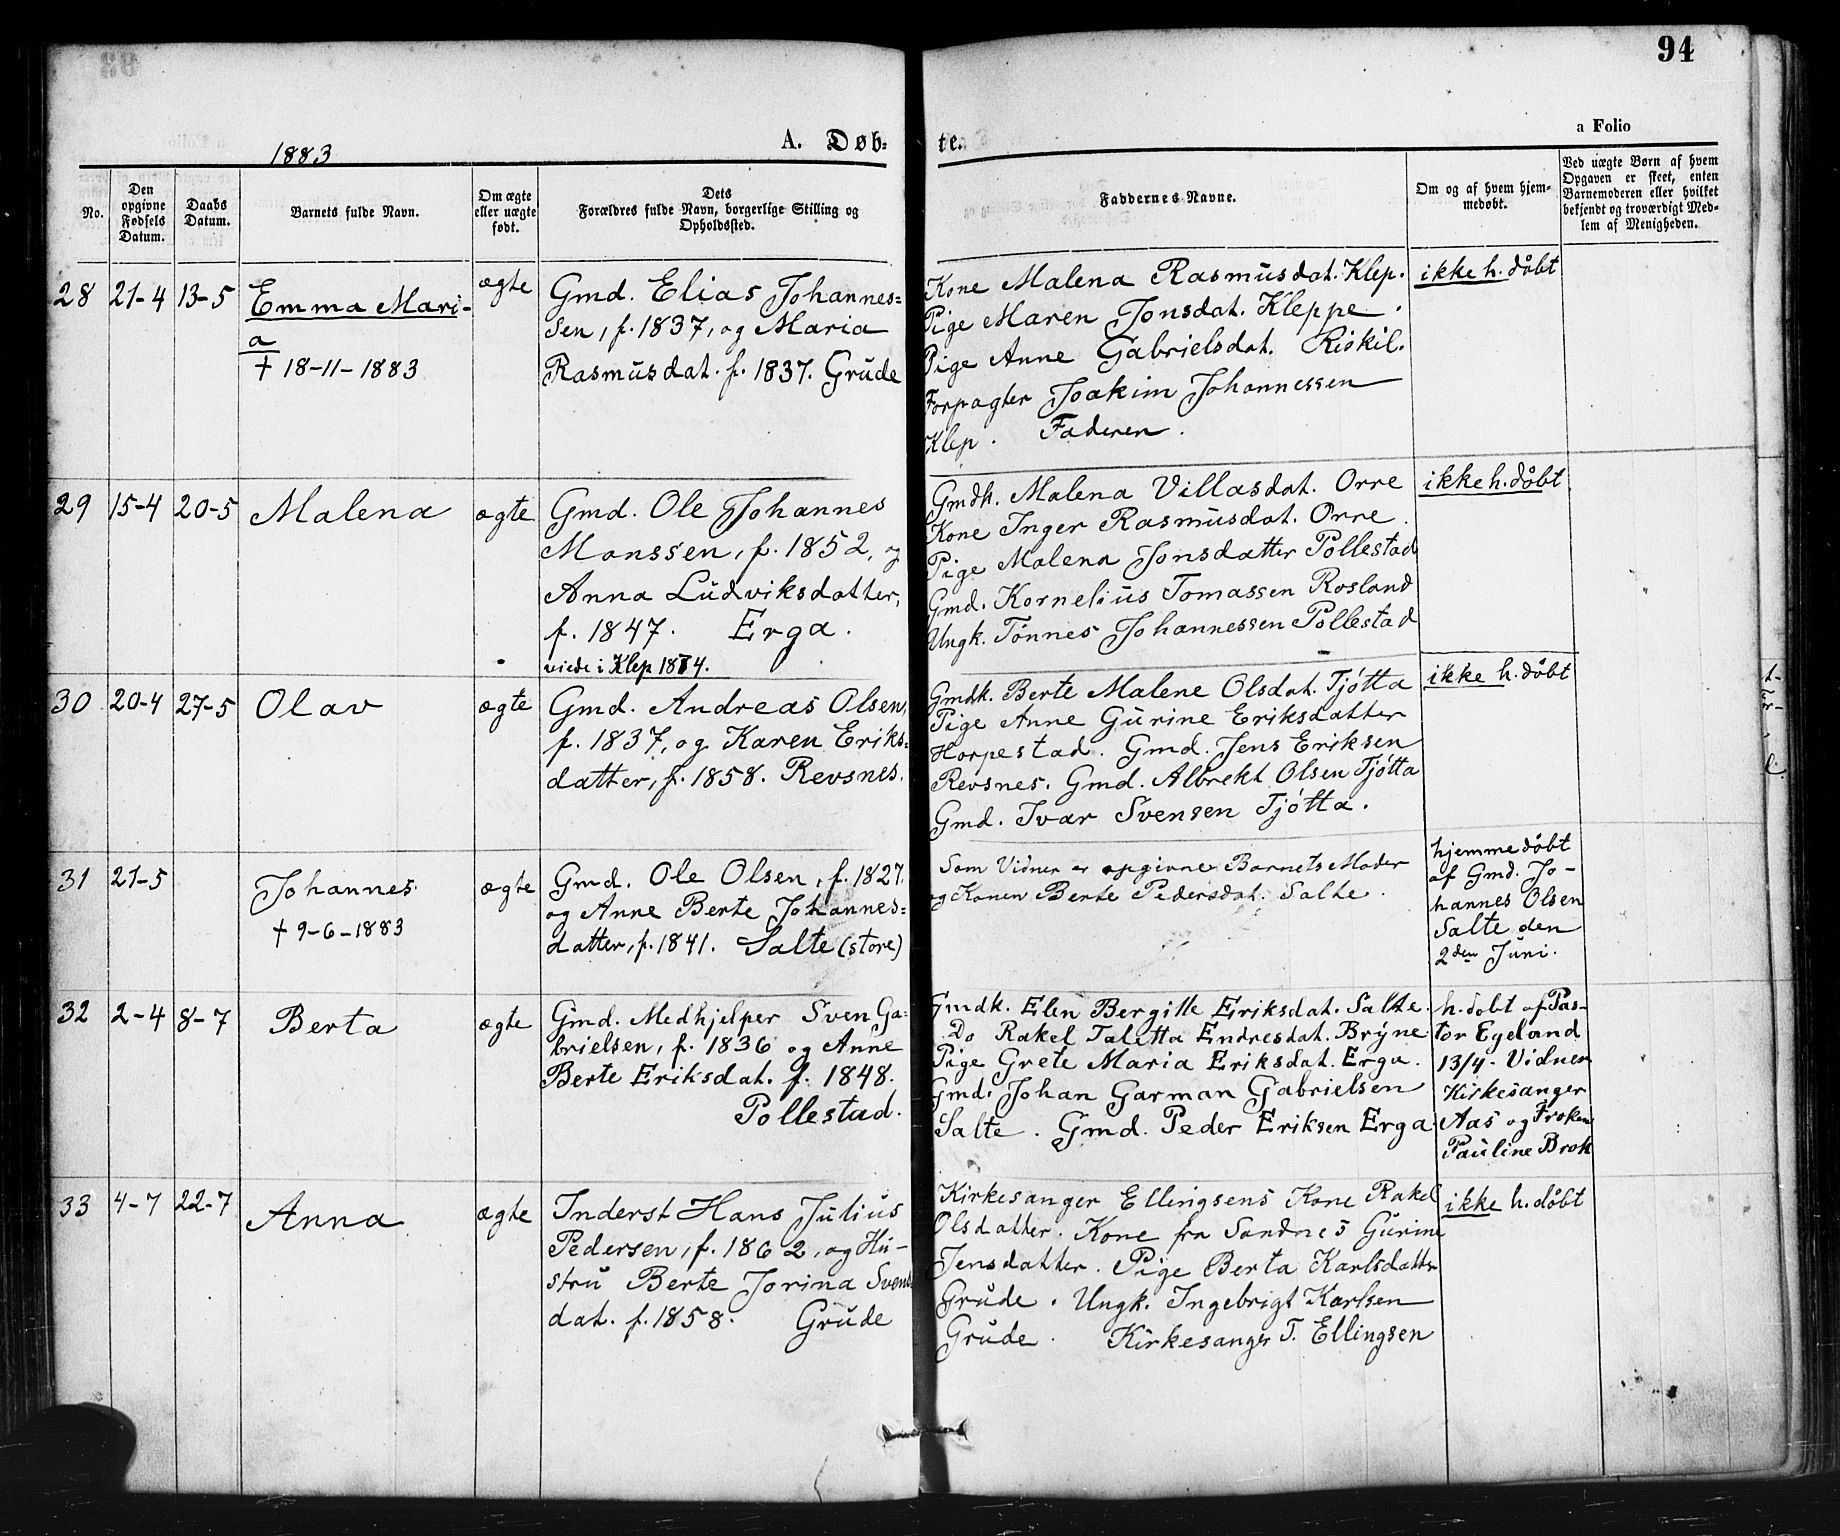 94
a Folio
1883
A. Døb-
te.
No.
Den
opgivne
Fødsels
Datum.
Daabs
Datum.
Barnets fulde Navn.
Om ægte
eller uægte
født.
Dets
Forældres fulde Navn, borgerlige Stilling og
Opholdssted.
Faddernes Navne.
Om og af hvem hjem-
medøbt.
Ved uægte Børn af hvem
Opgaven er skeet, enten
Barnemoderen eller hvilket
bekjendt og troværdigt Med-
lem af Menigheden.
28 21-4 13-5
Emma Mari-
a
† 18-11-1883
ægte
Gmd. Elias Johannes=
sen, f. 1837, og Maria
Rasmusdat. f. 1837. Grude
Kone Malena Rasmusdat. Klep.
Pige Maren Jonsdat. Kleppe.
Pige Anne Gabrielsdat. Riskil.
Forpagter Joakim Johannessen
Klep. Faderen.
ikke h. døbt
29 15-4 20-5
Malena
ægte
Gmd. Ole Johannes
Monssen, f. 1852, og
Anna Ludviksdatter,
f. 1847. Erga.
viede i Klep 1874.
Gmdk. Malena Villasdat. Orre
Kone Inger Rasmusdat. Orre.
Pige Malena Jonsdatter Pollestad
Gmd. Kornelius Tomassen Rosland
Ungk. Tønnes Johannessen Pollestad
ikke h. døbt
30 20-4 27-5
Olav
ægte
Gmd. Andreas Olsen,
f. 1837, og Karen Eriks=
datter, f. 1858. Revsnes.
Gmdk. Berte Malene Olsdat. Tjøtta
Pige Anne Gurine Eriksdatter
Horpestad. Gmd. Jens Eriksen
Revsnes. Gmd. Albrekt Olsen Tjøtta
Gmd. Ivar Svensen Tjøtta.
ikke h. døbt
31 21-5
Johannes
† 9-6-1883
ægte
Gmd. Ole Olsen, f. 1827.
og Anne Berte Johannes=
datter, f. 1841. Salte (store)
Som Vidner er opgivne Barnets Moder
og Konen Berte Pedersdat. Salte.
hjemmedøbt
af Gmd. Jo-
hannes Olsen
Salte den
2den Juni.
32 2-4 8-7
Berta
ægte
Gmd. Medhjelper Sven Ga=
brielsen, f. 1836 og Anne
Berte Eriksdat. f. 1848.
Pollestad.
Gmdk. Elen Bergitte Eriksdat. Salte.
Do Rakel Taletta Endresdat. Bryne
Pige Grete Maria Eriksdat. Erga.
Gmd. Johan Garman Gabrielsen
Salte. Gmd. Peder Eriksen Erga
h. døbt af Pas-
tor Egeland
13/4. Vidner
Kirkesanger
Aas og Frøken
Pauline Brok
33 4-7 22-7
Anna
ægte
Inderst Hans Julius
Pedersen, f. 1862, og Hu-
stru Berte Jorina Svens
dat. f. 1858. Grude
Kirkesanger Ellingsens Kone Rakel
Olsdatter. Kone fra Sandnes Gurine
Jensdatter. Pige Berta Karlsdatter
Grude. Ungk. Ingebrigt Karlsen
Grude. Kirkesanger T. Ellingsen
ikke h. døbt